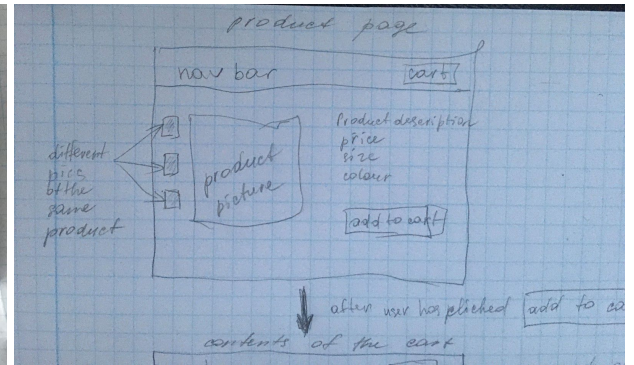 product page
nav bar
cart
different
pics
of the
same
product
product
picture
Product description
price
size
colour
add to cart
after user has pliched
add to ca
contents of the cart